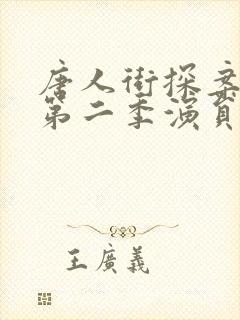 唐人街探案
第二季演員
王廣義